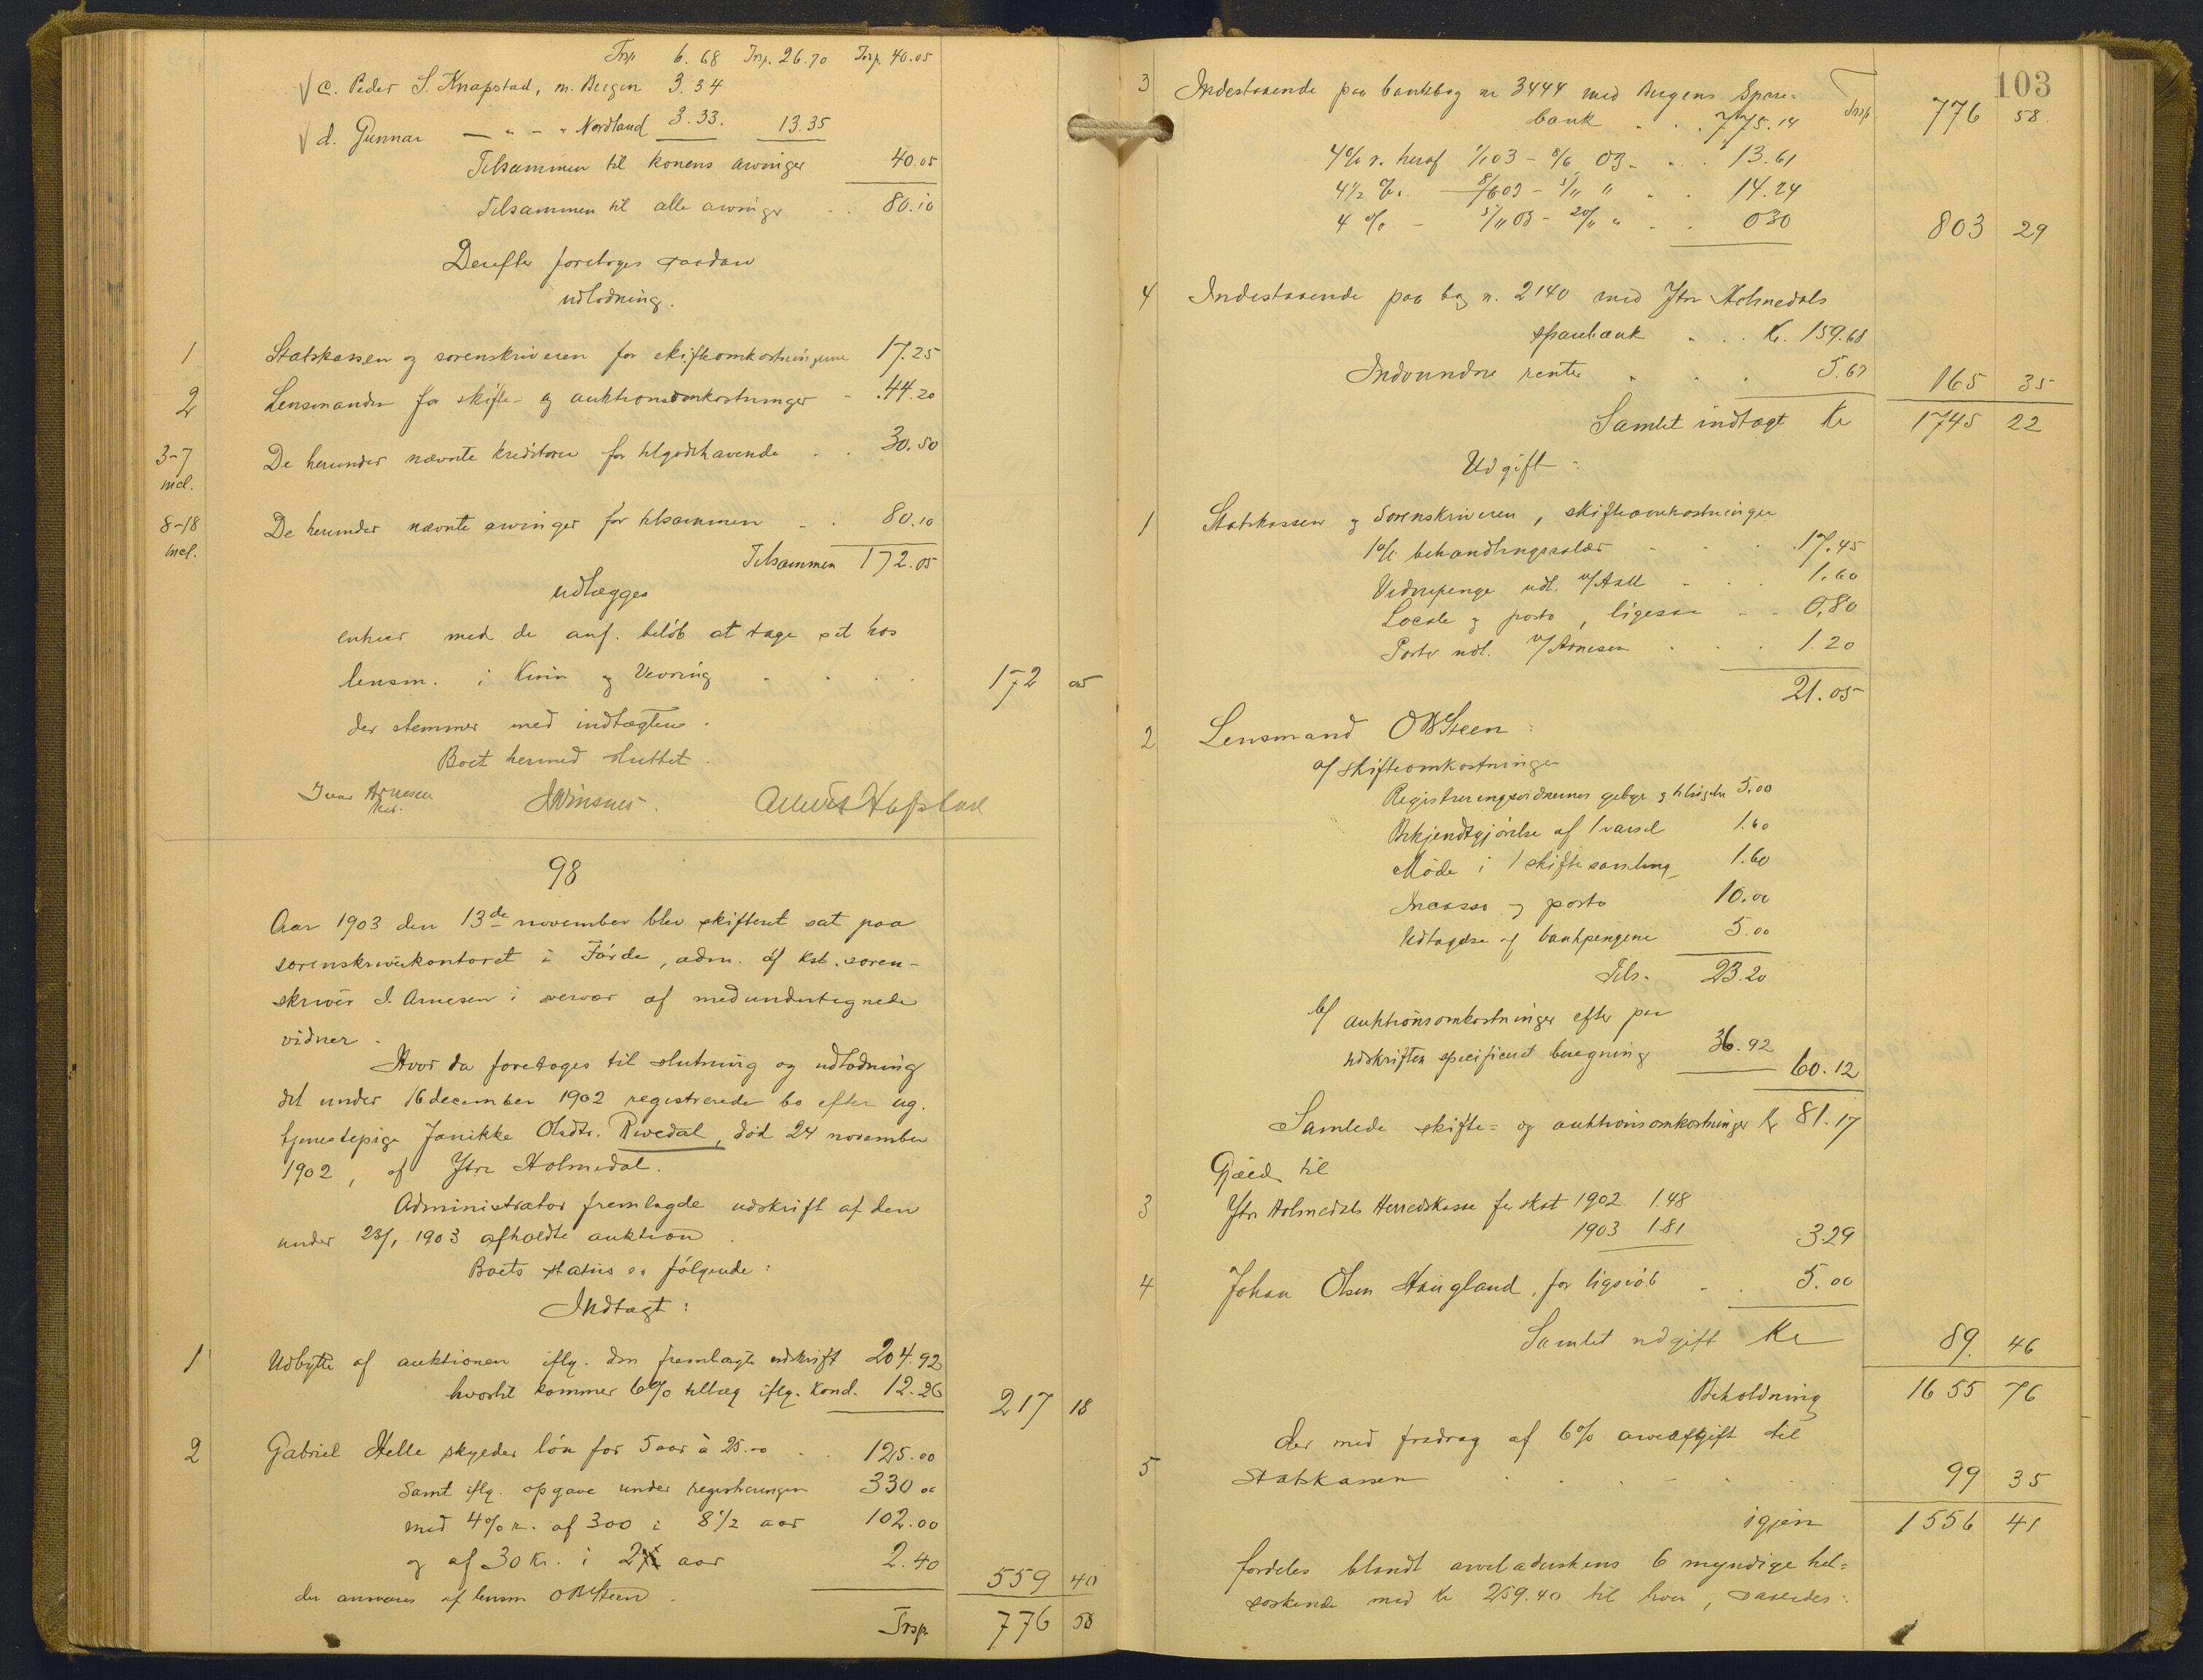 Trsp 6.68 Trsp. 26.70 Trsp. 40.05
c. Peder S. Knapstad, m. Bergen 3.34
d. Gunnar — " - " Nordland 3.33. 13.35
Tilsammen til konens arvinger 40.05
Tilsammen til alle arvinger . . 80.10
Derefter foretoges saadan
udlodning.
1 Statskassen og sorenskriveren for skifteomkostningerne 17.25
2 Lensmanden for skifte- og auktionsomkostninger - . 44.20
3-7 incl. De herunder nævnte kreditorer for tilgodehavende . . 30.50
8-18 incl. De herunder nævnte arvinger for tilsammen - . 80.10
Tilsammen 172.05
udlægges
enhver med de anf. beløb at tage sit hos
lensm. i Kinn og Vevring . . . . 172 05
der stemmer med indtægten.
Boet hermed sluttet.
Arnesen
98
Aar 1903 den 13de november blev skifteret sat paa
sorenskriverkontoret i Førde, adm. af kst. soren-
skriver I. Arnesen i overvær af medundertegnede
vidner.
Hvor da foretoges til slutning og udlodning
det under 16 december 1902 registrerede bo efter ug.
tjenestepige Janikke Olsdtr. Rivedal, død 24 november
1902, af Ytre Holmedal.
Administrator fremlagde udskrift af den
under 23/1 1903 afholdte auktion.
Boets status er følgende:
Indtægt:
1 Udbytte af auktionen iflg. den fremlagte udskrift 204.92
hvortil kommer 6% tillæg iflg. kond. 12.26 217 18
2 Gabriel Helle skylder løn for 5 aar à 25.00 . . 125.00
Samt iflg. opgave under registreringen 330 00
med 4% r. af 300 i 8 1/2 aar 102.00
og af 30 Kr. i 2 aar 2.40 559 40
der annvares af lensm OBSteen.
Trsp. 776 58
103
Trsp. 776 58.
3 Indestaaende paa bankbog nr 3444 med Bergens Spare-
bank . . . 775.14
4% r. heraf 1/1 03 - 8/6 03 - . . 13.61
4 1/2 % r. — 8/6 03 - 5/11 " . . 14.24
4 % - 5/11 03 - 20/11 " . . 0 30 803 29
4 Indestaaende paa bog n. 2140 med Ytre Holmedals
sparebank . . . Kr. 159.68
Indvundne renter . . . 5.67 165 35
Samlet indtægt Kr 1745 22
Udgift:
1 Statskassen og Sorenskriveren, skifteomkostninger
1% behandlingssalær . . . 17.45
Vidnepenge udl. v/Aall - . . 1.60
Locale og porto, ligesaa - - 0.80
Porto udl. v/Arnesen . . . 1.20
21.05
2 Lensmand OBSteen:
a/ skifteomkostninger
Registreringsvidnernes gebyr 5.00
Bekjendtgjørelse af 1 varsel 1.60
Møde i 1 skiftesamling 1.60
Incasso og porto 10.00
Udtagelse af bankpengene 5.00
Tils. 23.20
b/ auktionsomkostninger efter paa
udskriften specificeret beregning 36.92 60.12
Samlede skifte= og auktionsomkostninger Kr 81.17
Gjæld til
3 Ytre Holmedals Herredskasse for skat 1902 1.48
1903 1.81 3.29
4 Johan Olsen Haugland, for ligsøb - . 5.00
Samlet udgift Kr 89. 46
Beholdning 1655 76
der med fradrag af 6% arveafgift til
5 Statskassen . . . . . 99 35
igjen 1556 41
fordeles blandt arveladerskens 6 myndige hel=
søskende med Kr 259.40 til hver, saaledes: